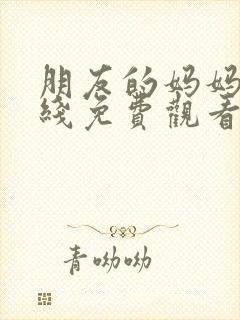 朋友的妈妈
綫免費觀看
青呦呦